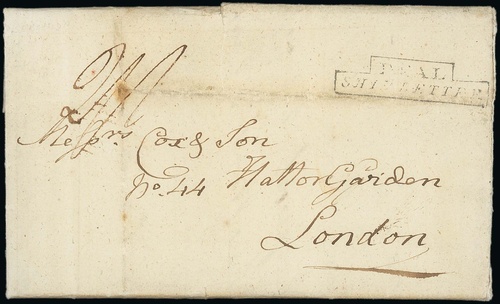 DEAL
SHIP LETTER
Messrs Cox & Son
No. 44 Hatton Garden
London